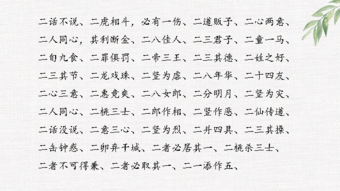 二话不说、二虎相斗，必有一伤、二道贩子、二心两意、
二人同心，其利断金、二八佳人、二三君子、二童一马、
二旬九食、二罪俱罚、二帝三王、二三其德、二姓之好、
三其节、二龙戏珠、二竖为虐、二八年华、二十四友、
二心三意、二惠竞爽、二八女郎、二分明月、二竖为灾、
二人同心、二桃三士、二郎作相、二竖作恶、二仙传道、
二话没说、二意三心、二竖为烈、二并四具、二三其操、
二缶钟惑、二卵弃干城、二者必居其一、二桃杀三士、
二者不可得兼、二者必取其一、二一添作五、